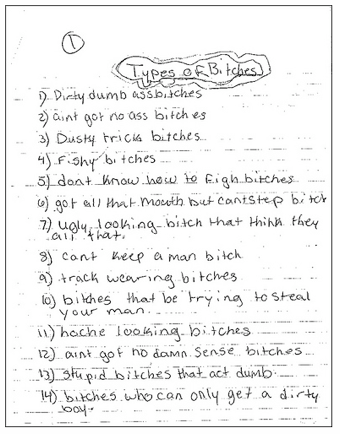 1
Types of Bitches
1) Dirty dumb ass bitches
2) aint got no ass bitches
3) Dusty trick bitches
4) Fishy bitches
5) dont know how to figh bitches
6) got all that mouth but cant step bitch
7) ugly looking bitch that think they
all that.
8) cant keep a man bitch
9) track wearing bitches
10) bitches that be trying to steal
your man.
11) hoche looking bitches
12) aint got no damn sense bitches
13) stupid bitches that act dumb
14) bitches who can only get a dirty
boy.